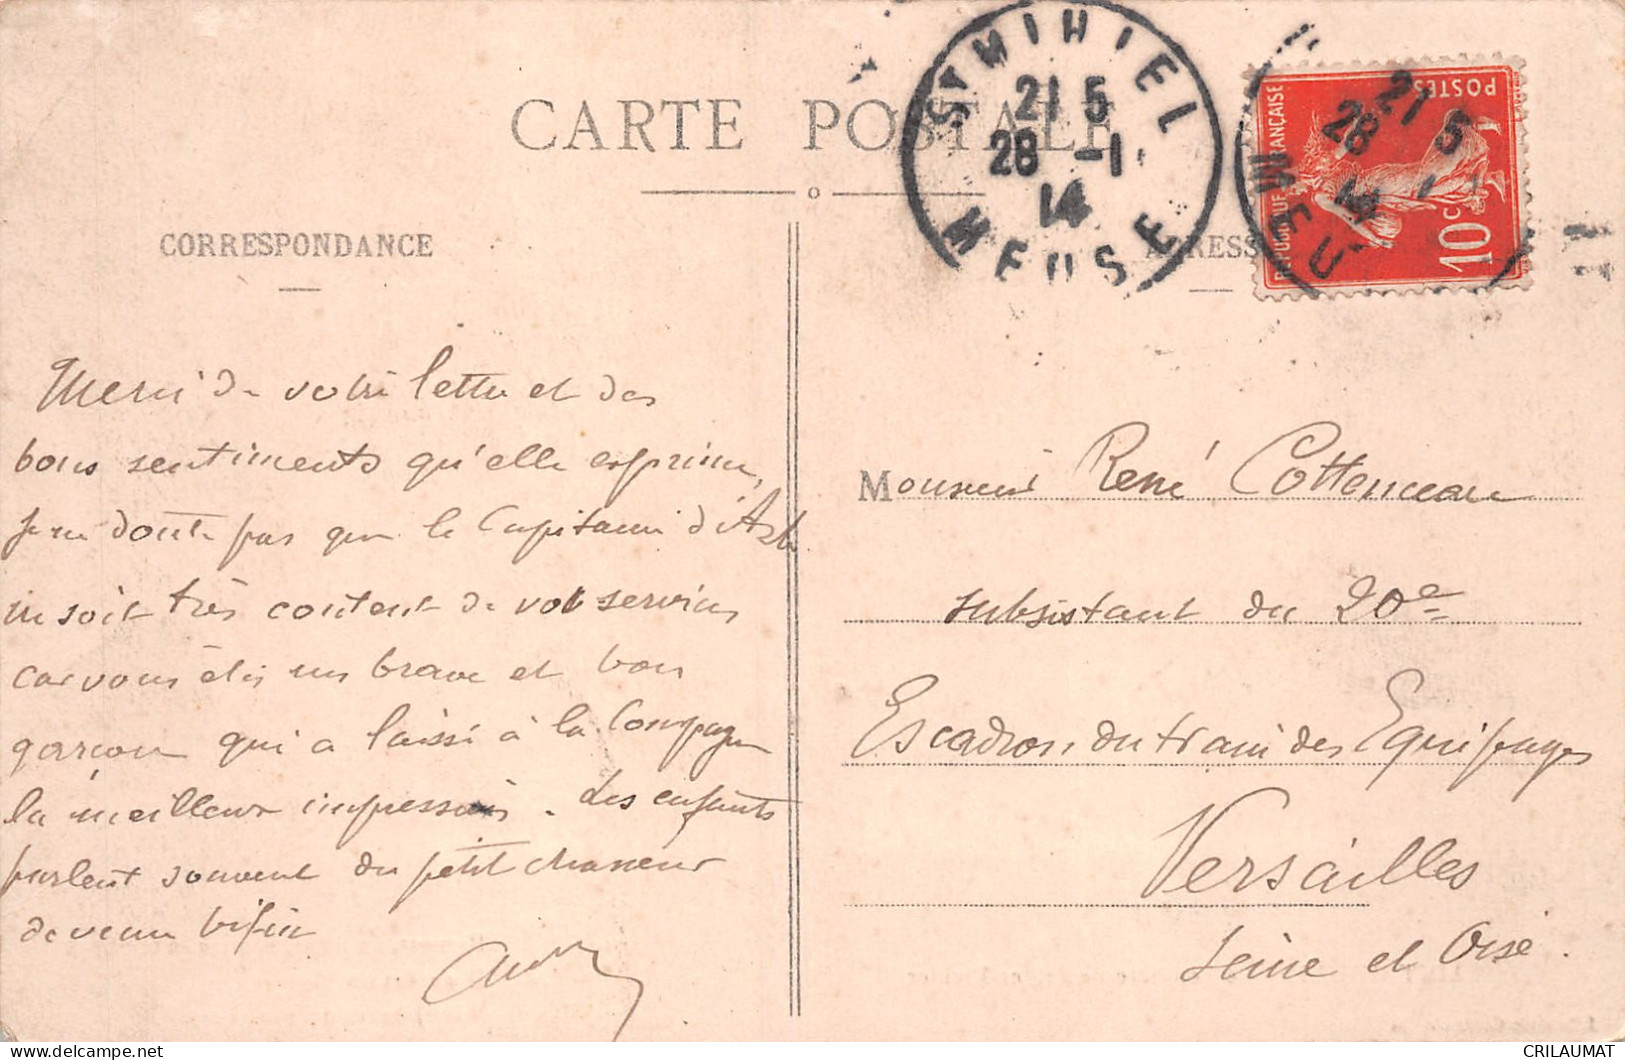 CARTE POSTALE
ST MIHIEL
21 5
28 -1
14
MEUSE
21 5
28 1
14
MEU
REPUBLIQUE FRANÇAISE
POSTES
10c
CORRESPONDANCE
ADRESSE
Merci de votre lettre et des
bons sentiments qu'elle exprime,
je ne doute pas que le Capitaine
ne soit très content de vos services
car vous êtes un brave et bon
garçon qui a laissé à la Compagnie
la meilleure impression. Les enfants
parlent souvent du petit chasseur
devenu biffin
Monsieur René Cottenceau
subsistant du 20e
Escadron du train des Equipages
Versailles
Seine et Oise.
CRILAUMAT